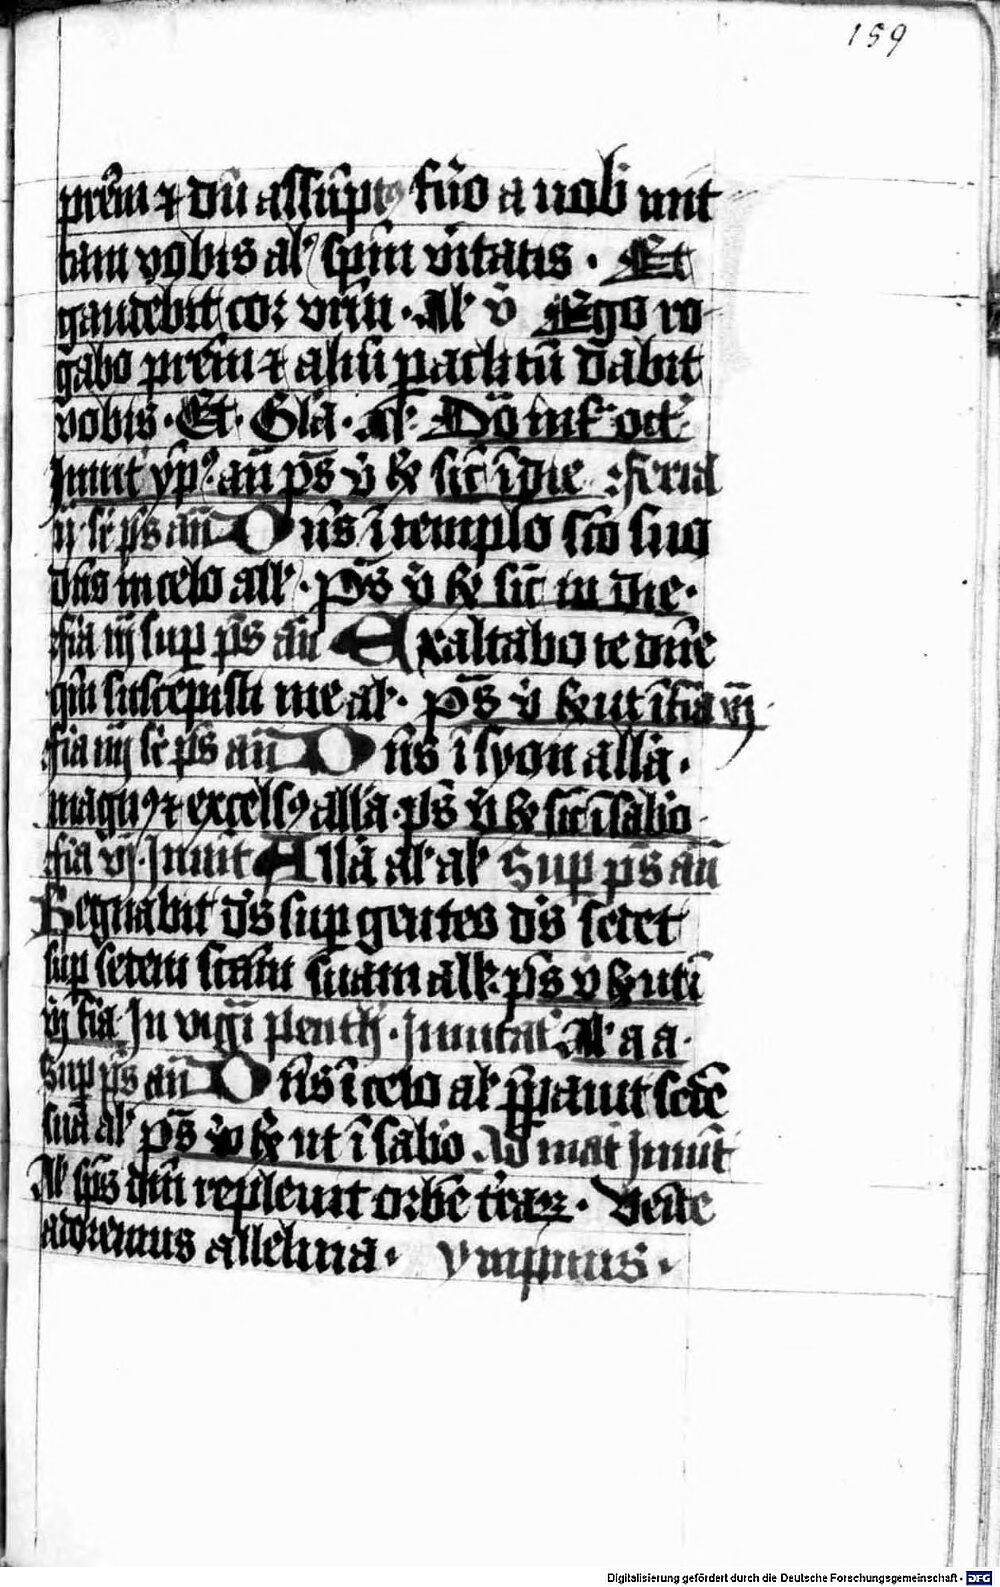 159
pr̄em ⁊ dū assūptꝰ fūo a vob mit
tam vobis al' sp̄m v̄itatis · Et
gaudebit cor vr̄m · Al' v̄ Ego ro-
gabo pr̄em ⁊ aliū paclitū dabit
vobis · Et · Gl̄a · a' · Dō inf' oct'
Inuit' yp̄' · an̄ ps̄ v̄ & sic̄ ī die feria
ij · sr̄ ps̄ an̄ Dn̄s ī templo sc̄o suo
dn̄s in celo all' · Ps̄ v̄ & sic̄ in die ·
fīa iij sup ps̄ an̄ Exaltabo te dn̄e
qm̄ suscepisti me al' · ps̄ v̄ & ut ī fīa vj
fīa iiij sr̄ ps̄ an̄ Dn̄s ī syon all̄a ·
magnꝰ ⁊ excelsꝰ all̄a · ps̄ v̄ & sic̄ ī sabō
fīa vj · Inuit All̄a al' al' Sup ps̄ an̄
Regnabit ds̄ sup gentes ds̄ sedet
sup sedem scām suam all' · ps̄ v̄ & ut ī
vj fīa In vigī pentħ · Inuitat' Al' a a ·
Sup ps̄ an̄ Dn̄s ī celo al' p̄pauit sedē
suā al' ps̄ v̄ & ut ī sabō Ad mat̄ Inuit̄
Al' sps̄ dn̄i repleuit orbē t'raꝝ · Venīte
adoremus alleluia · Ympnus ·
Digitalisierung gefördert durch die Deutsche Forschungsgemeinschaft - DFG